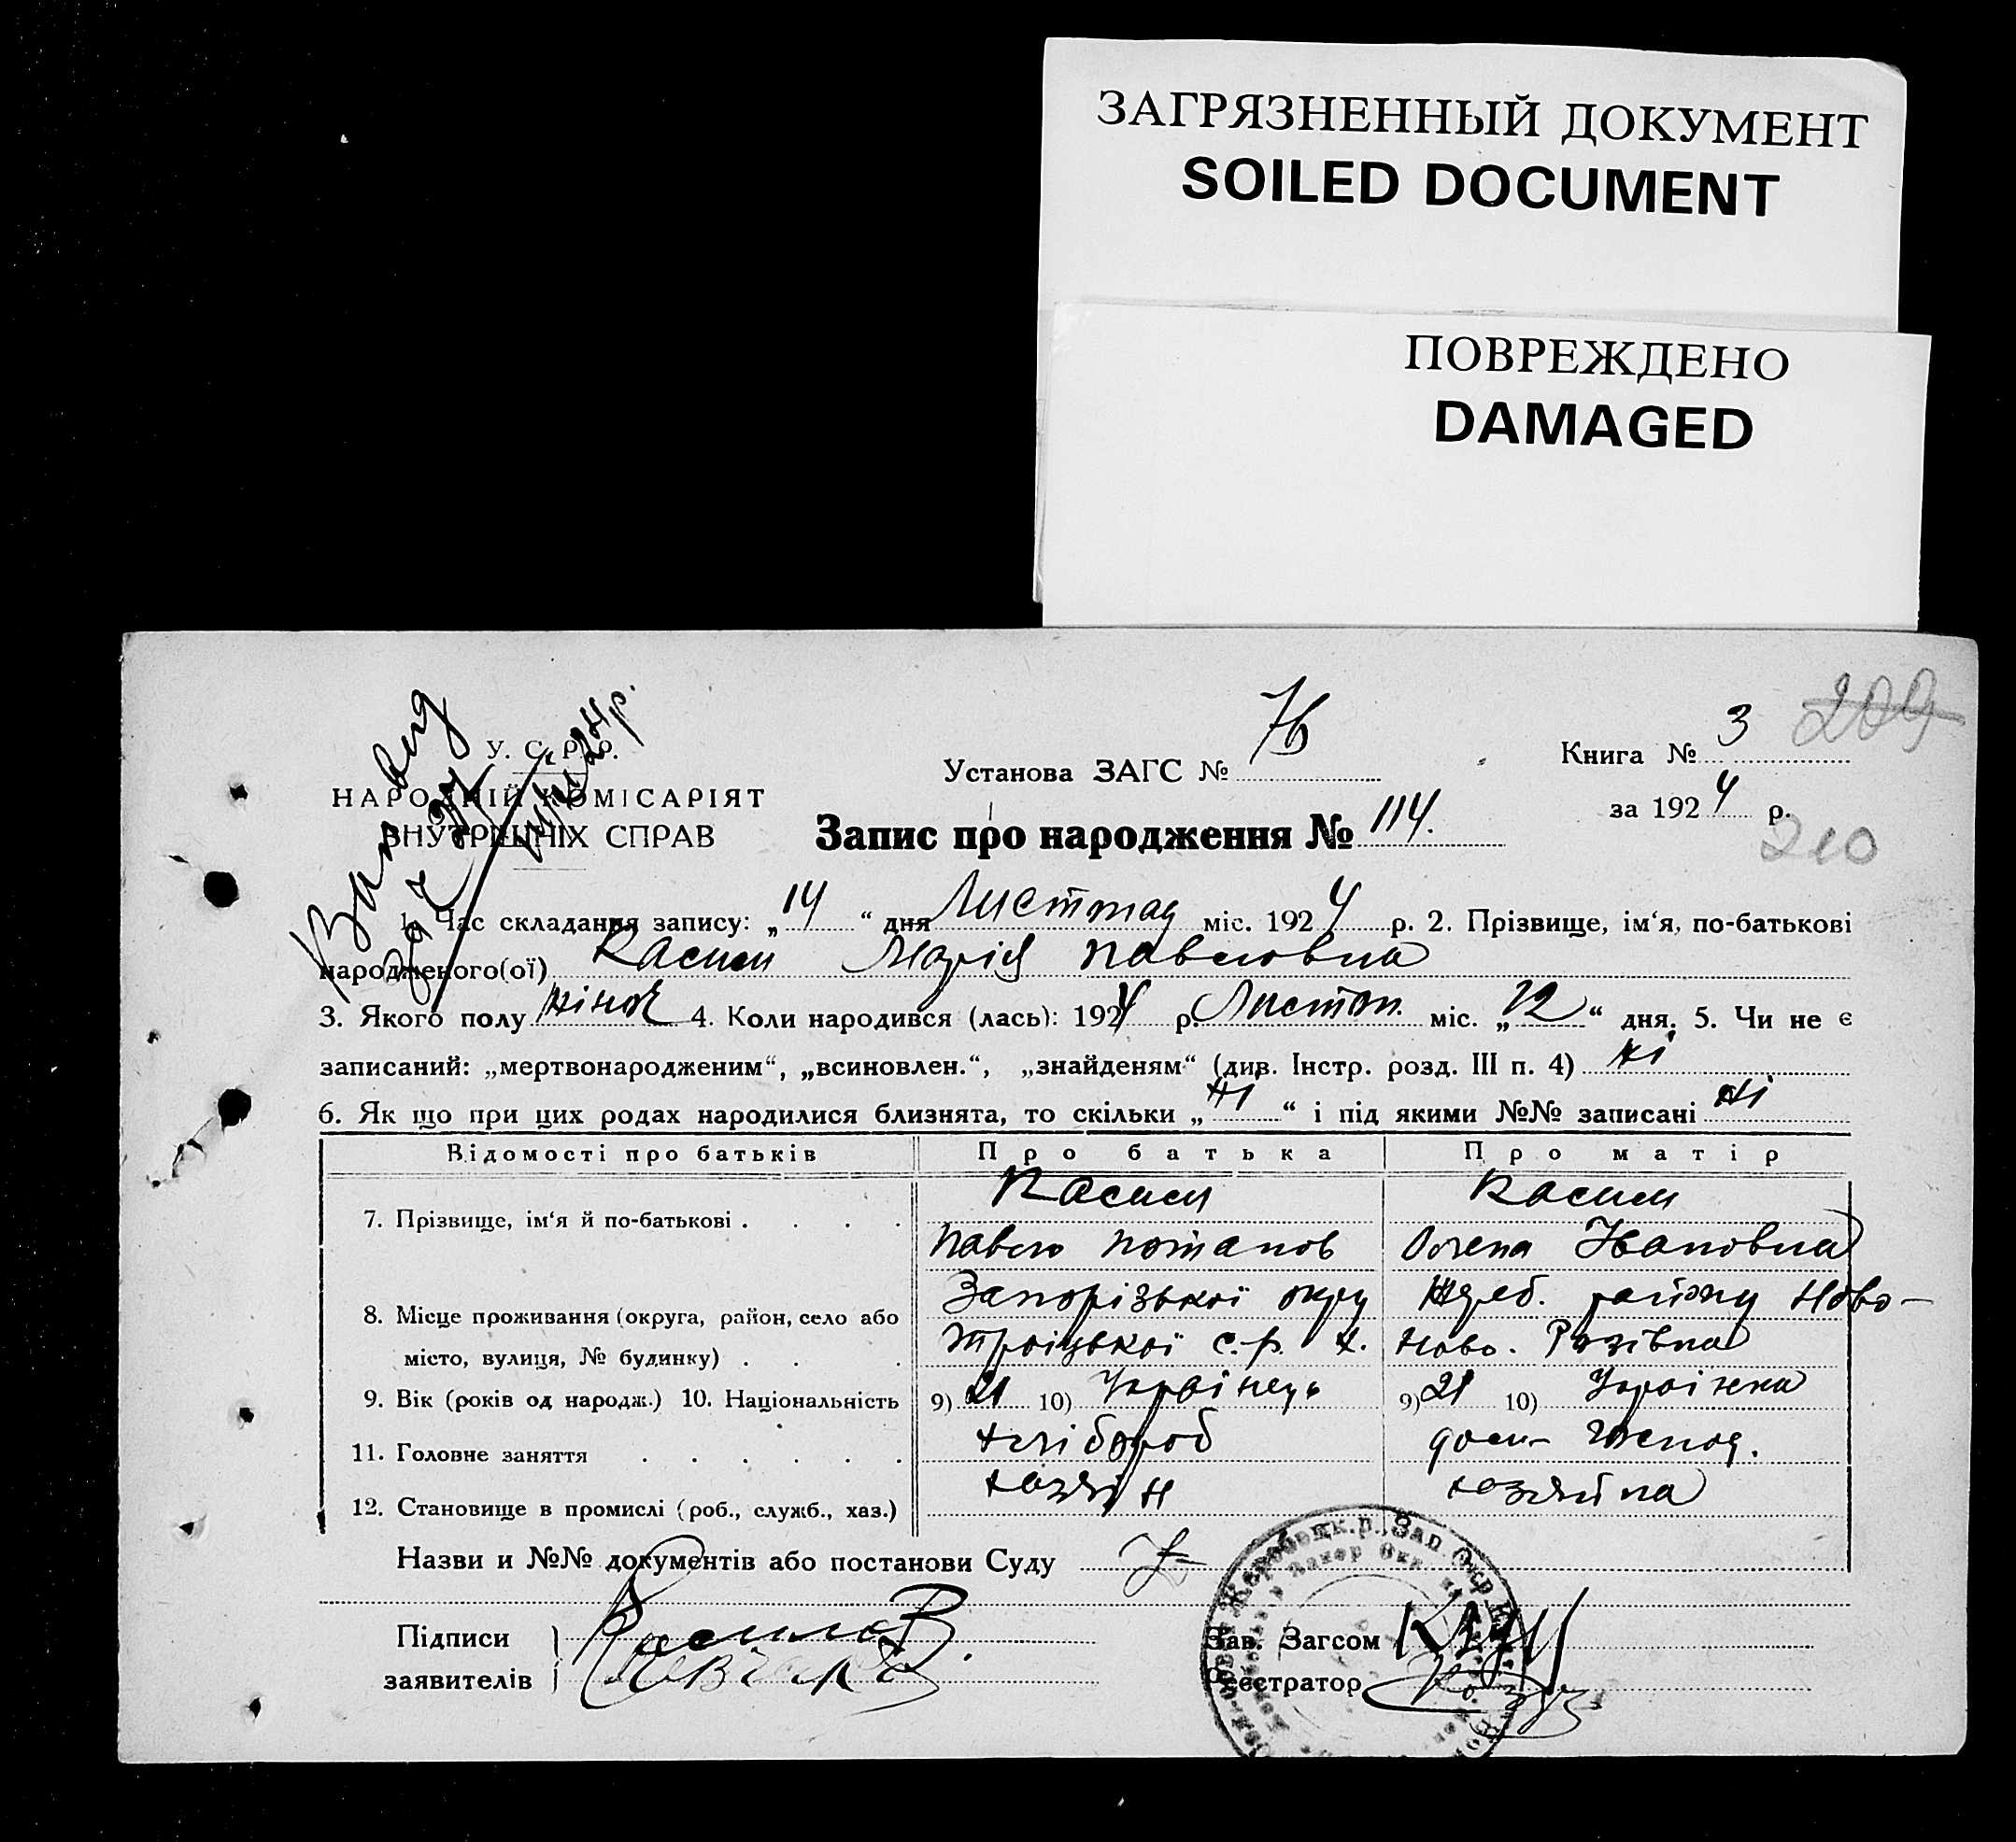 ЗАГРЯЗНЕННЫЙ ДОКУМЕНТ
SOILED DOCUMENT
ПОВРЕЖДЕНО
DAMAGED
209
У. С. Р. Р.
НАРОДНІЙ КОМІСАРІЯТ
ВНУТРІШНІХ СПРАВ
Установа ЗАГС № 76
Книга № 3
за 1924 р.
210
Запис про народження № 114.
1. Час складання запису: „14“ дня Листопад міс. 1924 р. 2. Прізвище, ім‘я, по-батькові
народженого(ої) Касим Марія Павловна
3. Якого полу жіноч 4. Коли народився (лась): 1924 р. Листоп. міс. „12“ дня. 5. Чи не є
записаний: „мертвонародженим“, „всиновлен.“, „знайденям“ (див. Інстр. розд. III п. 4) ні
6. Як що при цих родах народилися близнята, то скільки „ні“ і під якими №№ записані ні
Відомості про батьків Про батька Про матір
7. Прізвище, ім‘я й по-батькові . . . . Касим Касим
Павло Потапов Олена Івановна
8. Місце проживання (округа, район, село або Запорізької окру Жереб. району Ново-
місто, вулиця, № будинку) . . . Троіцької с.р. х. Ново.
9. Вік (років од народж.) 10. Національність 9) 21 10) Украінець 9) 21 10) Украінка
11. Головне заняття . . . . . . хлібороб дом- господ.
12. Становище в промислі (роб., служб., хаз.) хазяін хазяйка
Назви и №№ документів або постанови Суду
Підписи
заявителів
Зав. Загсом
Реєстратор